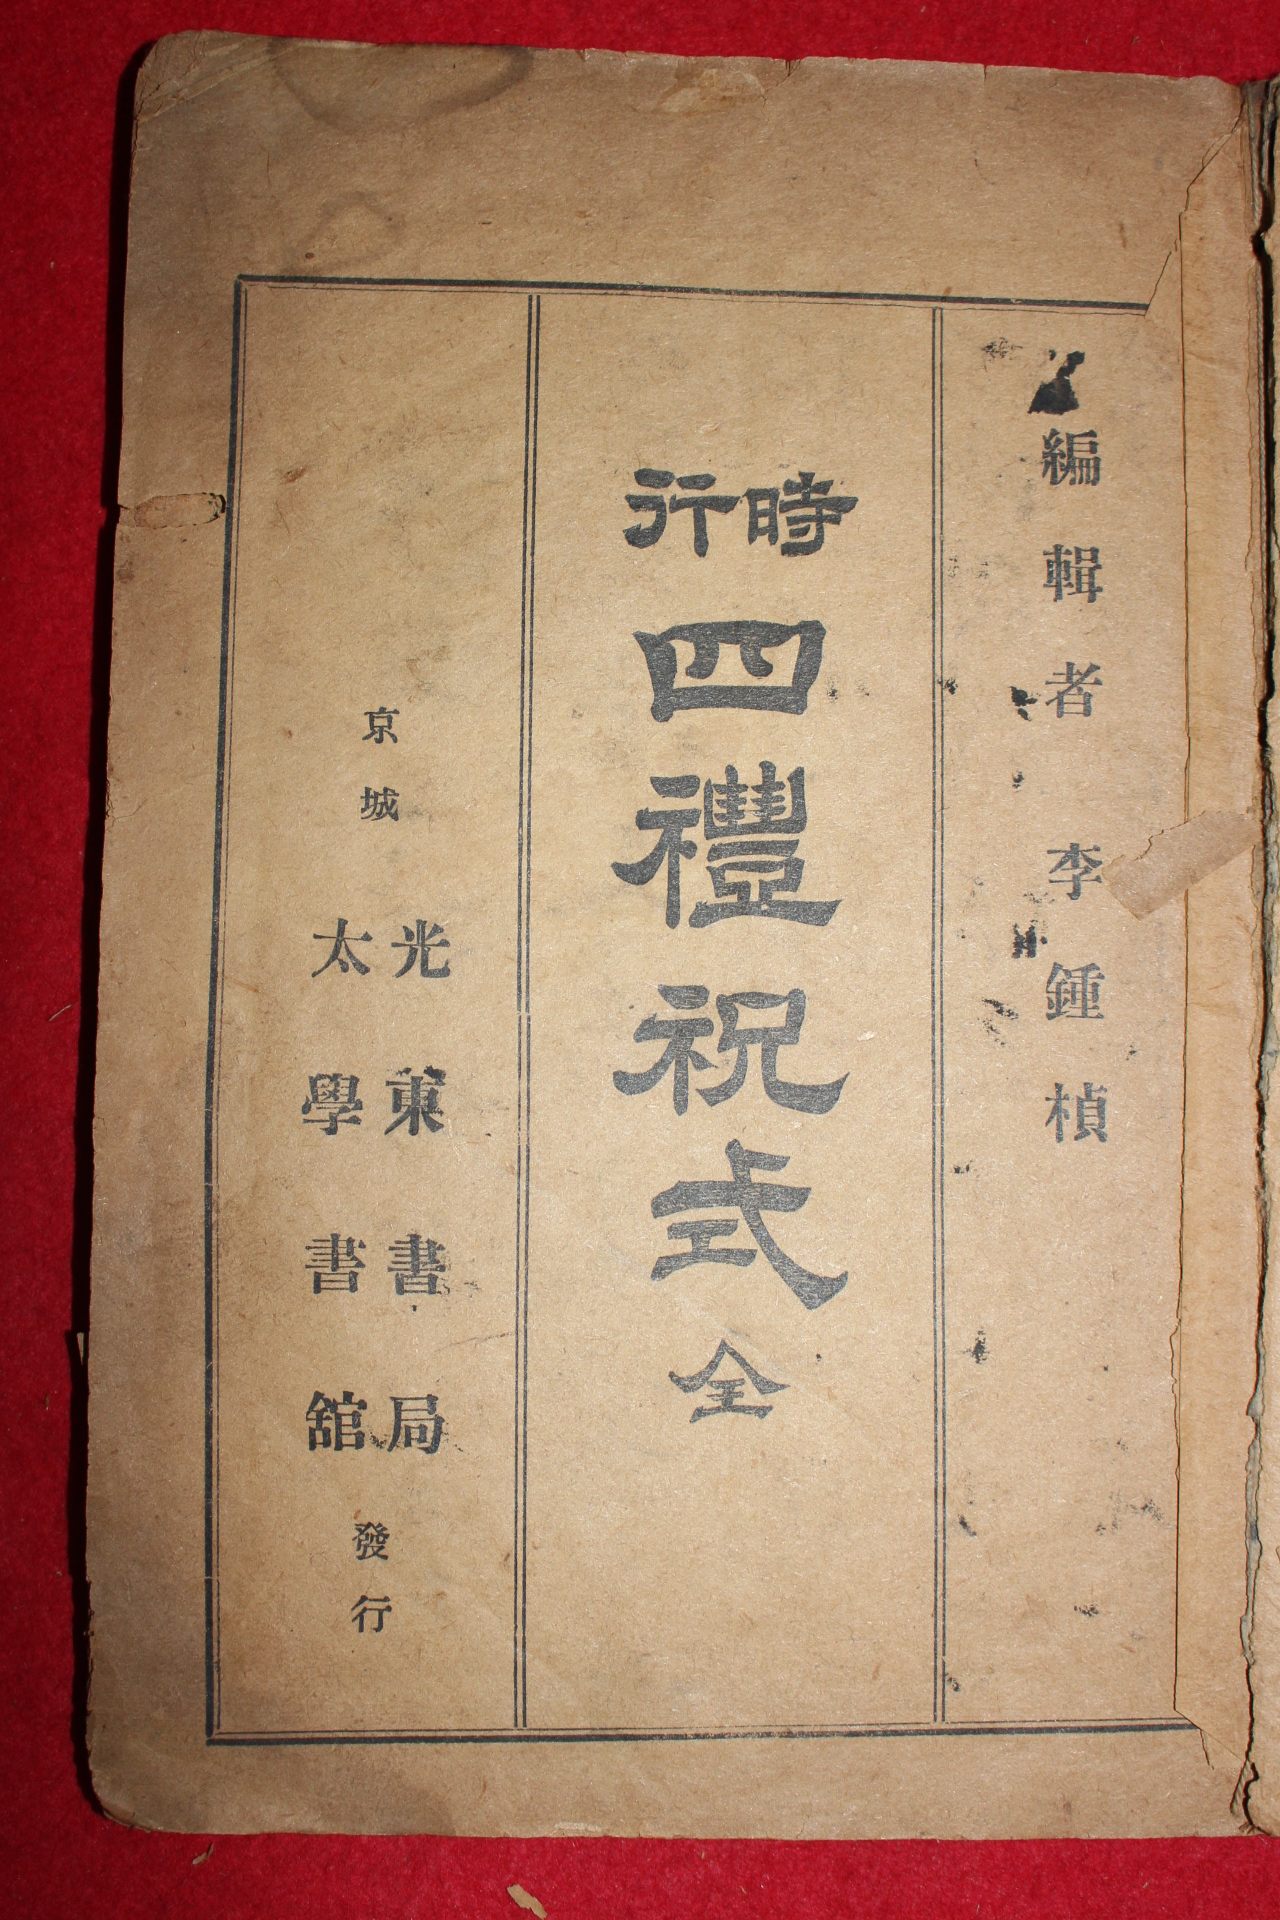 編輯者 李鍾楨
時行
四禮祝式 全
京城
光東書局
太學書舘
發行